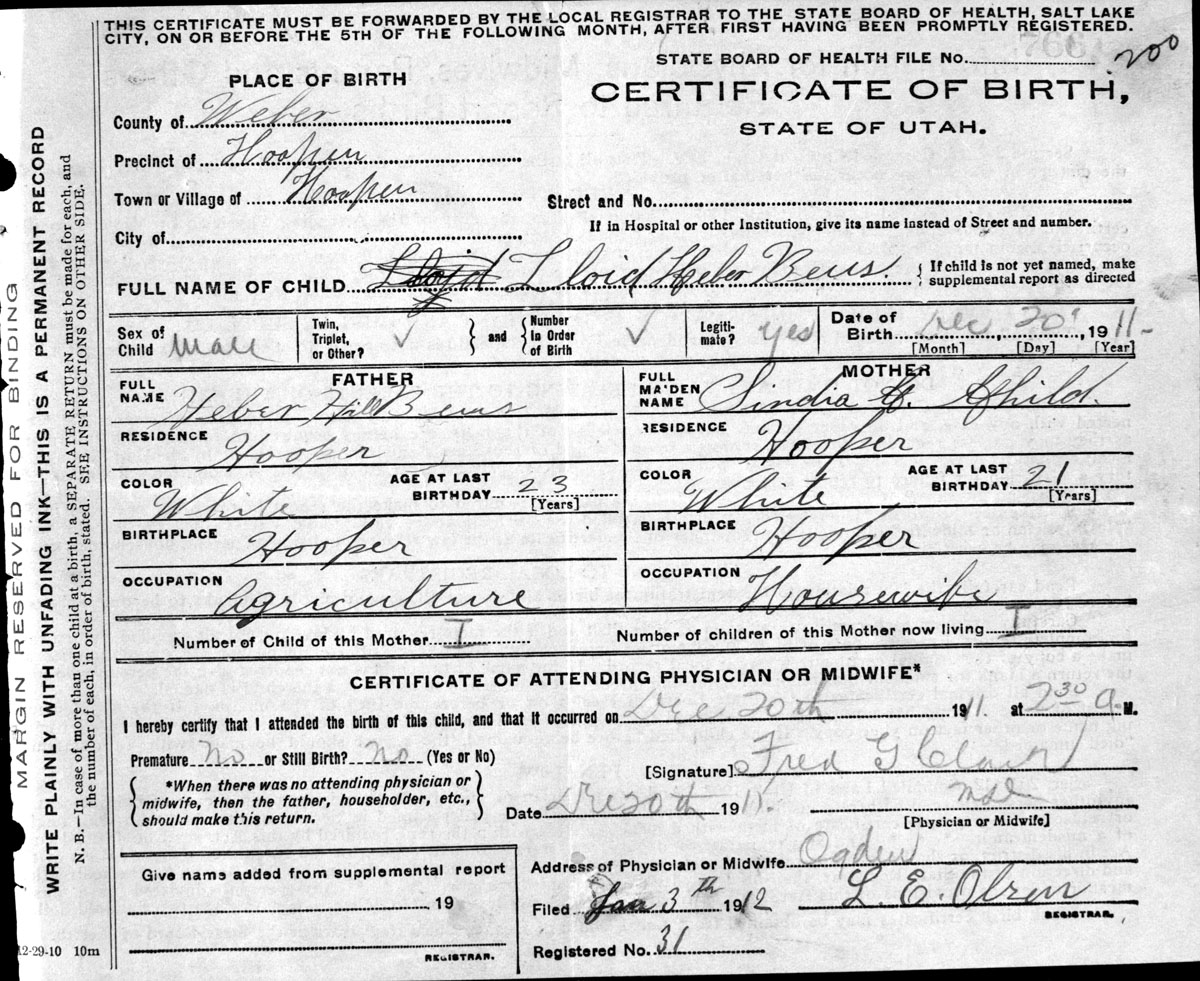 THIS CERTIFICATE MUST BE FORWARDED BY THE LOCAL REGISTRAR TO THE STATE BOARD OF HEALTH, SALT LAKE
CITY, ON OR BEFORE THE 5TH OF THE FOLLOWING MONTH, AFTER FIRST HAVING BEEN PROMPTLY REGISTERED.
STATE BOARD OF HEALTH FILE No. 200
PLACE OF BIRTH
CERTIFICATE OF BIRTH,
STATE OF UTAH.
County of Weber
Precinct of Hooper
Town or Village of Hooper
Street and No.
If in Hospital or other Institution, give its name instead of Street and number.
City of
FULL NAME OF CHILD Lloid Heber Beus. { If child is not yet named, make supplemental report as directed
Sex of Child Male
Twin, Triplet, or Other? ✓ } and { Number in Order of Birth ✓
Legitimate? yes
Date of Birth Dec, 20, 1911
[Month] [Day] [Year]
FATHER
FULL NAME Heber Hill Beus
RESIDENCE Hooper
COLOR White
AGE AT LAST BIRTHDAY 23
[Years]
BIRTHPLACE Hooper
OCCUPATION Agriculture
MOTHER
FULL MAIDEN NAME Sindia Child.
RESIDENCE Hooper
COLOR White
AGE AT LAST BIRTHDAY 21
[Years]
BIRTHPLACE Hooper
OCCUPATION Housewife
Number of Child of this Mother I
Number of children of this Mother now living I
CERTIFICATE OF ATTENDING PHYSICIAN OR MIDWIFE*
I hereby certify that I attended the birth of this child, and that it occurred on Dec 20th 1911. at 2 30 a. M.
Premature No or Still Birth? No (Yes or No)
[Signature] Fred G Clark
{ *When there was no attending physician or midwife, then the father, householder, etc., should make this return. }
Date Dec 20th 1911.
[Physician or Midwife]
Give name added from supplemental report
19
REGISTRAR.
Address of Physician or Midwife Ogden
Filed Jan 3th 1912 L. E. Olsen
REGISTRAR.
Registered No. 31
12-29-10 10m
MARGIN RESERVED FOR BINDING
WRITE PLAINLY WITH UNFADING INK—THIS IS A PERMANENT RECORD
N. B.—In case of more than one child at a birth, a SEPARATE RETURN must be made for each, and
the number of each, in order of birth, stated. SEE INSTRUCTIONS ON OTHER SIDE.